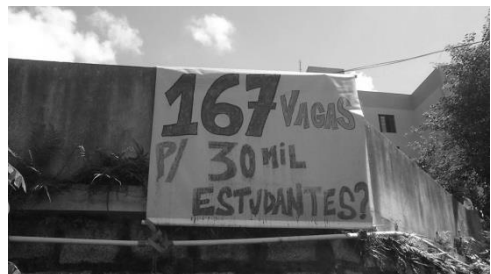 167 VAGAS
P/ 30 MIL
ESTUDANTES?